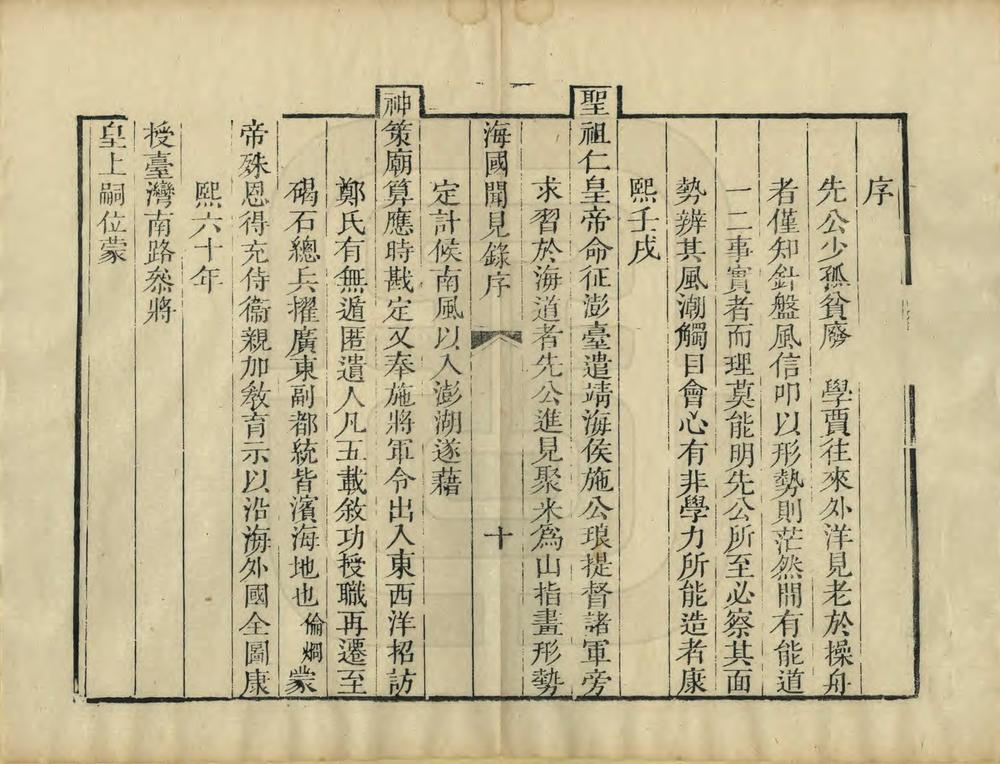 序
先公少孤貧廢 學賈往來外洋見老於操舟
者僅知針盤風信叩以形勢則茫然間有能道
一二事實者而理莫能明先公所至必察其面
勢辨其風潮觸目會心有非學力所能造者康
熙壬戌
聖祖仁皇帝命征澎臺遣靖海侯施公琅提督諸軍旁
求習於海道者先公進見聚米為山指畫形勢
海國聞見錄序 十
定計候南風以入澎湖遂藉
神策廟算應時戡定又奉施將軍令出入東西洋招訪
鄭氏有無遁匿遺人凡五載敘功授職再遷至
碣石總兵擢廣東副都統皆濱海地也倫炯蒙
帝殊恩得充侍衞親加教育示以沿海外國全圖康
熙六十年
授臺灣南路叅將
皇上嗣位蒙